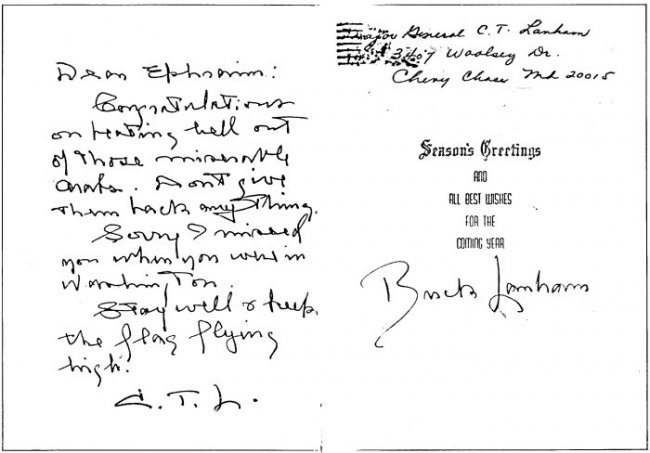 Dear Ephraim:
Congratulations
on beating hell out
of those miserable
Arabs. Don't give
them back anything.
Sorry I missed
you when you were in
Washington.
Stay well & keep
the flag flying
high.
C. T. L.
Major General C. T. Lanham
3607 Woolsey Dr.
Chevy Chase Md 20015
Season's Greetings
AND
ALL BEST WISHES
FOR THE
COMING YEAR
Buck Lanham